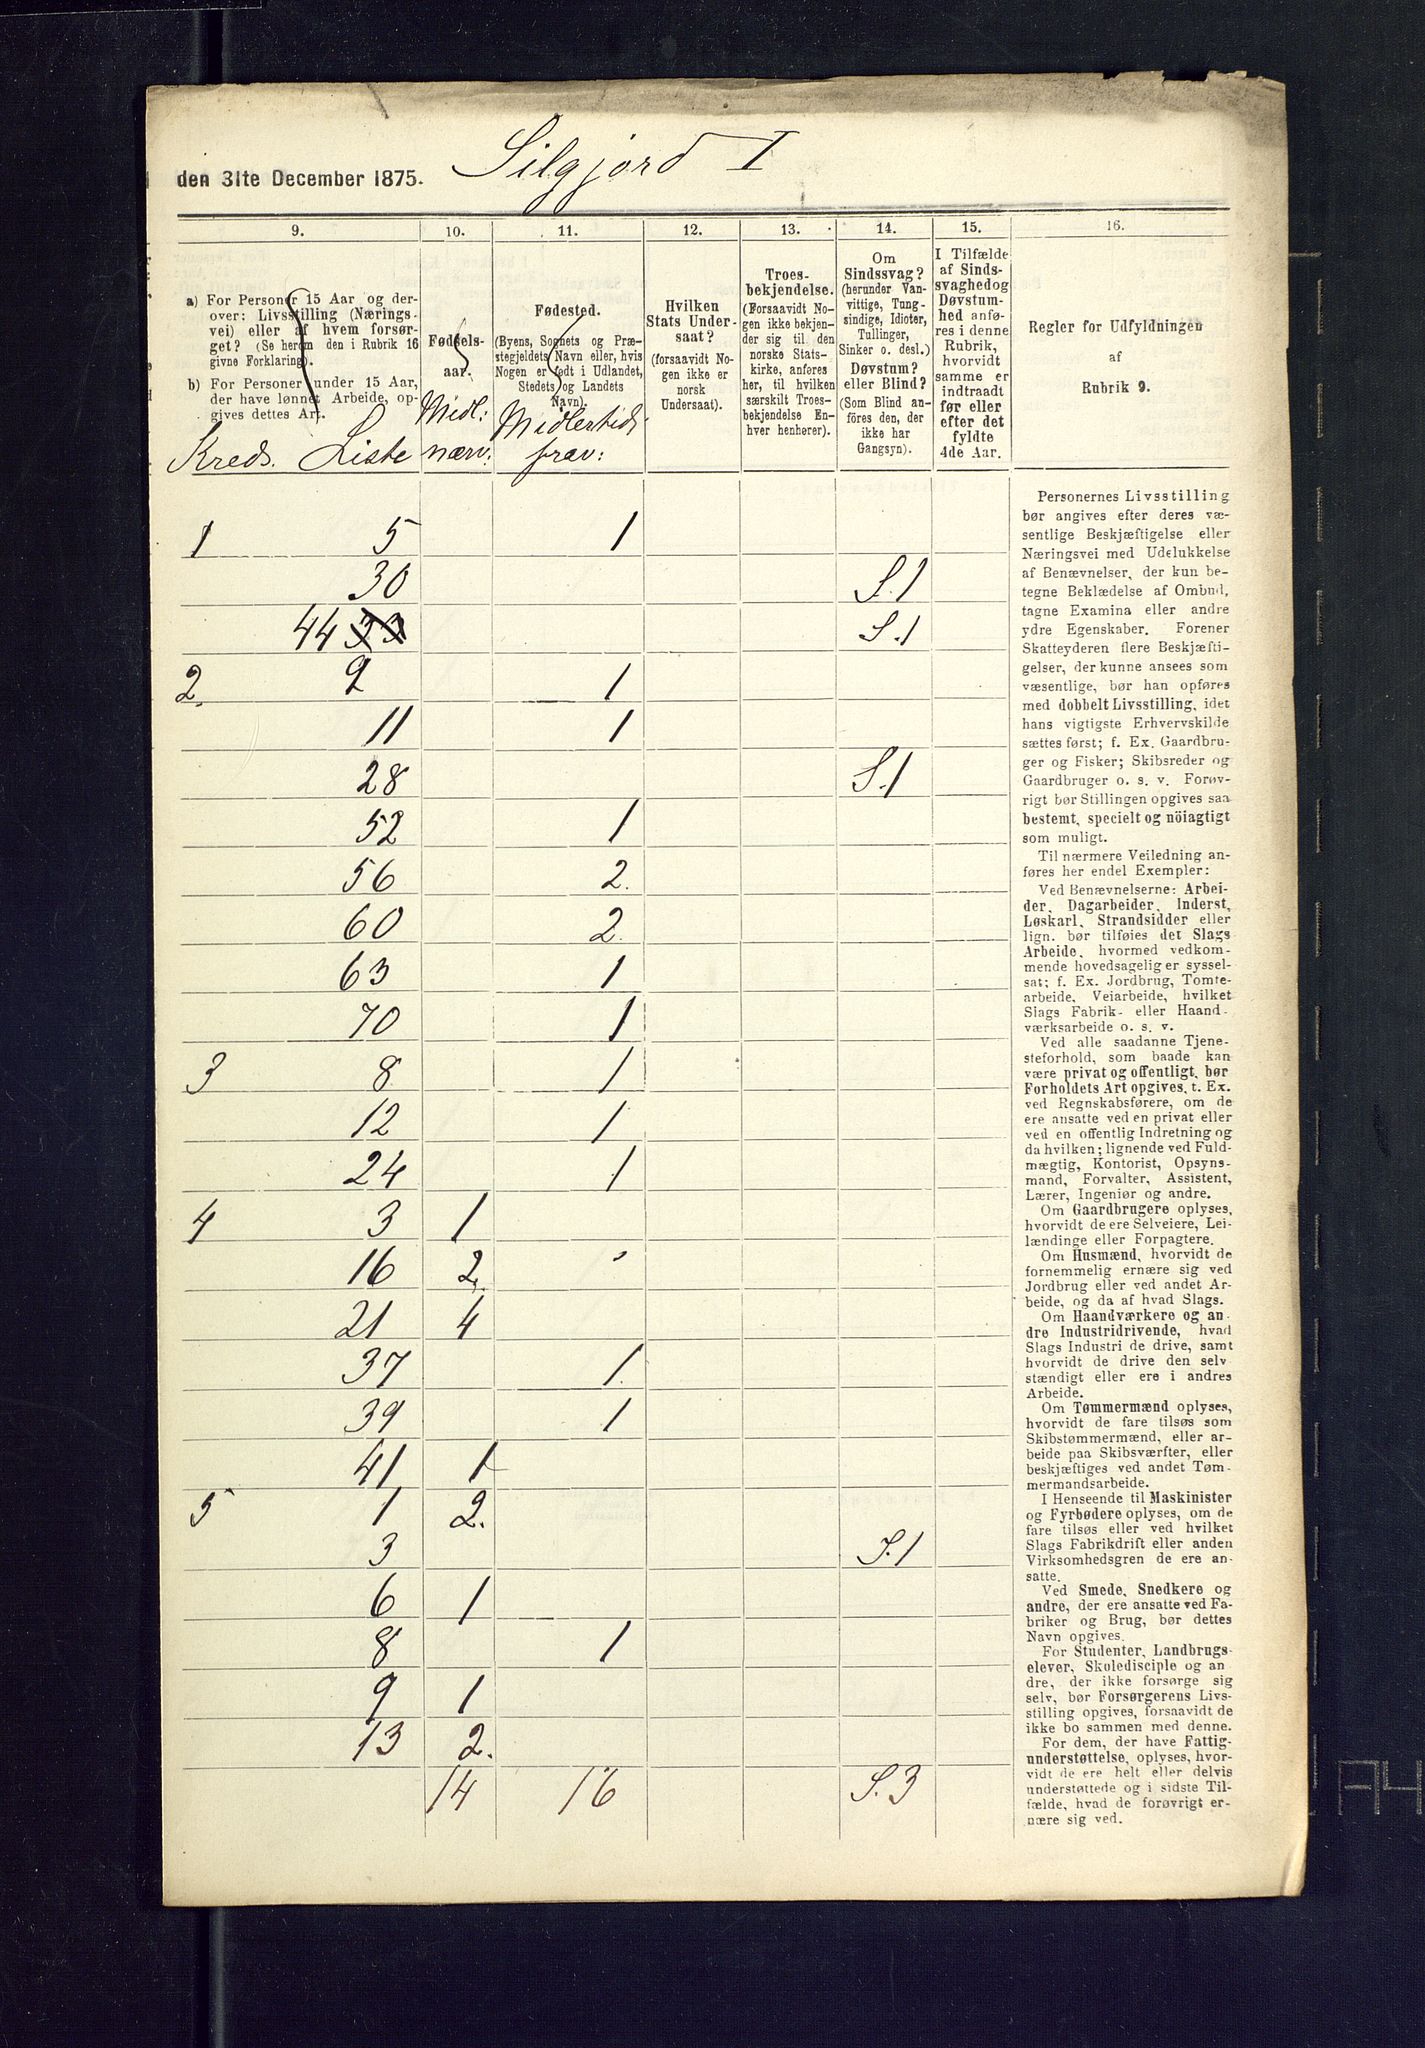 Silgjord I
den 31te December 1875.
9. 10. 11. 12. 13. 14. 15. 16.
a) For Personer 15 Aar og der-
over: Livsstilling (Nærings-
vei) eller af hvem forsør-
get? (Se herom den i Rubrik 16
givne Forklaring).
b) For Personer under 15 Aar,
der have lønnet Arbeide, op-
gives dettes Art.
Fødsels-
aar.
Fødested.
(Byens, Sognets og Præ-
stegjeldets Navn eller, hvis
Nogen er født i Udlandet,
Stedets og Landets
Navn).
Hvilken
Stats Under-
saat?
(forsaavidt No-
gen ikke er
norsk
Undersaat).
Troes-
bekjendelse.
(Forsaavidt No-
gen ikke bekjen-
der sig til den
norske Stats-
kirke, anføres
her, til hvilken
særskilt Troes-
bekjendelse En-
hver henhører).
Om
Sindssvag?
(herunder Van-
vittige, Tung-
sindige, Idioter,
Tullinger,
Sinker o. desl.)
Døvstum?
eller Blind?
(Som Blind an-
føres den, der
ikke har
Gangsyn).
I Tilfælde
af Sinds-
svaghed og
Døvstum-
hed anfø-
res i denne
Rubrik,
hvorvidt
samme er
indtraadt
før eller
efter det
fyldte
4de Aar.
Regler for Udfyldningen
af
Rubrik 9.
Kreds. Liste Midl: nærv: Midlertid: frav:
1 5 1
30 S.1
44 33 S.1
2. 9 1
11 1
28 S.1
52 1
56 2.
60 2.
63 1
70 1
3 8 1
12 1
24 1
4 3 1
16 2.
21 4
37 1.
39 1
41 1
5 1 2.
3 S.1
6 1
8 1
9 1
13 2.
14 16 S.3
Personernes Livsstilling
bør angives efter deres væ-
sentlige Beskjæftigelse eller
Næringsvei med Udelukkelse
af Benævnelser, der kun be-
tegne Beklædelse af Ombud,
tagne Examina eller andre
ydre Egenskaber. Forener
Skatteyderen flere Beskjæfti-
gelser, der kunne ansees som
væsentlige, bør han opføres
med dobbelt Livsstilling, idet
hans vigtigste Erhvervskilde
sættes først; f. Ex. Gaardbru-
ger og Fisker; Skibsreder og
Gaardbruger o. s. v. Forøv-
rigt bør Stillingen opgives saa
bestemt, specielt og nöiagtigt
som muligt.
Til nærmere Veiledning an-
føres her endel Exempler:
Ved Benævnelserne: Arbei-
der, Dagarbeider, Inderst,
Løskarl, Strandsidder eller
lign. bør tilføies det Slags
Arbeide, hvormed vedkom-
mende hovedsagelig er syssel-
sat; f. Ex. Jordbrug, Tomte-
arbeide, Veiarbeide, hvilket
Slags Fabrik- eller Haand-
værksarbeide o. s. v.
Ved alle saadanne Tjene-
steforhold, som baade kan
være privat og offentligt, bør
Forholdets Art opgives, t. Ex.
ved Regnskabsførere, om de
ere ansatte ved en privat eller
ved en offentlig Indretning og
da hvilken; lignende ved Fuld-
mægtig, Kontorist, Opsyns-
mand, Forvalter, Assistent,
Lærer, Ingeniør og andre.
Om Gaardbrugere oplyses,
hvorvidt de ere Selveiere, Lei-
lændinge eller Forpagtere.
Om Husmænd, hvorvidt de
fornemmelig ernære sig ved
Jordbrug eller ved andet Ar-
beide, og da af hvad Slags.
Om Haandværkere og an-
dre Industridrivende, hvad
Slags Industri de drive, samt
hvorvidt de drive den selv
stændigt eller ere i andres
Arbeide.
Om Tømmermænd oplyses,
hvorvidt de fare tilsøs som
Skibstømmermænd, eller ar-
beide paa Skibsværfter, eller
beskjæftiges ved andet Tøm-
mermandsarbeide.
I Henseende til Maskinister
og Fyrbødere oplyses, om de
fare tilsøs eller ved hvilket
Slags Fabrikdrift eller anden
Virksomhedsgren de ere an-
satte.
Ved Smede, Snedkere og
andre, der ere ansatte ved Fa-
briker og Brug, bør dettes
Navn opgives.
For Studenter, Landbrugs-
elever, Skoledisciple og an
dre, der ikke forsørge sig
selv, bør Forsørgerens Livs-
stilling opgives, forsaavidt de
ikke bo sammen med denne.
For dem, der have Fattig-
understøttelse, oplyses, hvor-
vidt de ere helt eller delvis
understøttede og i sidste Til-
fælde, hvad de forøvrigt er-
nære sig ved.
A4